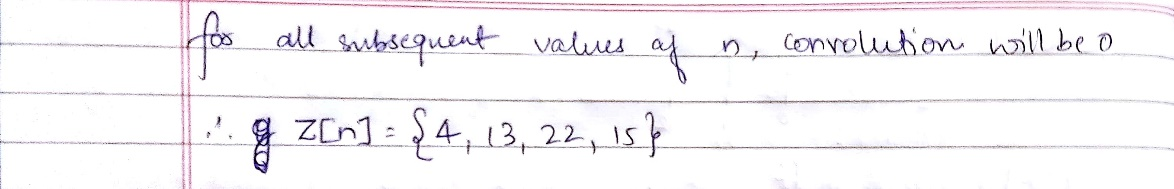 for all subsequent values of n, convolution will be 0
∴ z[n] = {4, 13, 22, 15}